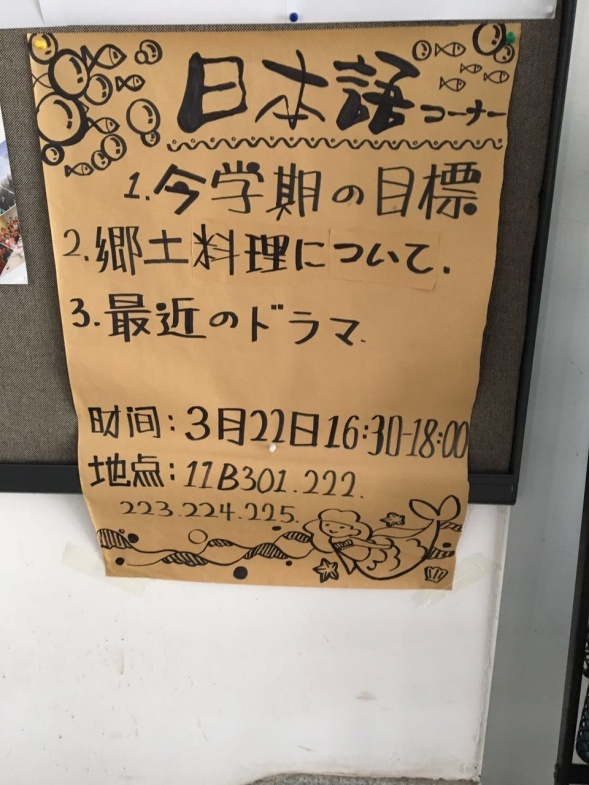 日本語コーナー
1.今学期の目標
2.郷土料理について.
3.最近のドラマ.
时间:3月22日16:30-18:00
地点:11B301.222.
223.224.225.